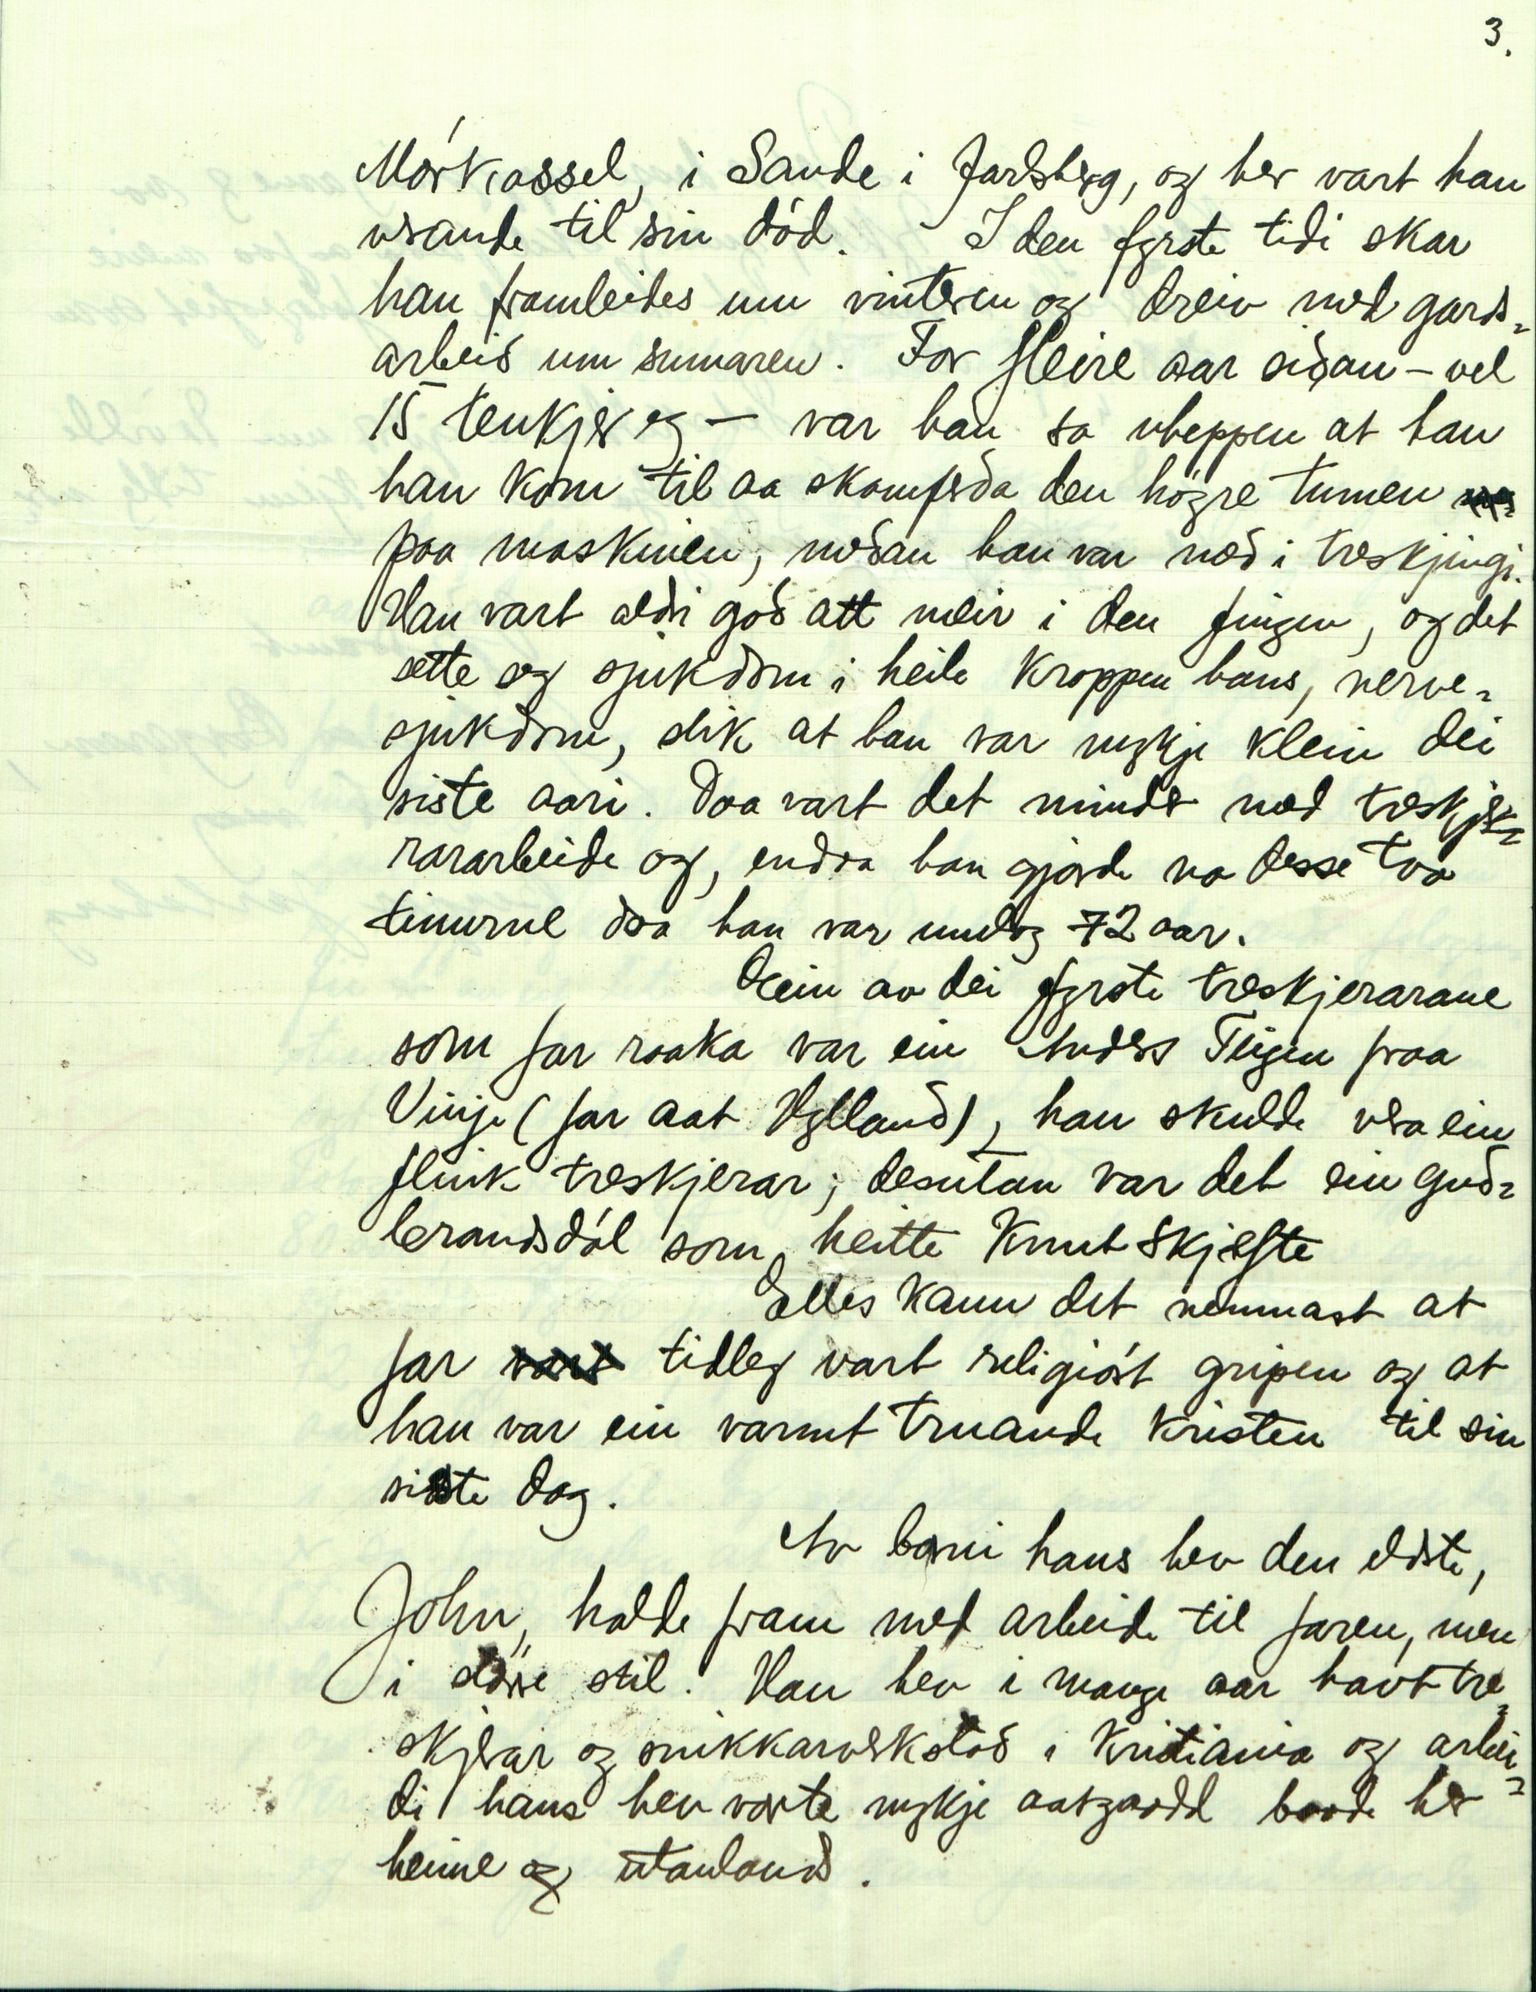 3.
Mórkassel, i Sande i Jarlsberg, og her vart han
verande til sin död. I den fyrste tidi skar
han framleides um vinteren og dreiv med gards-
arbeid um sumaren. For fleire aar sidan – vel
15 tenkjer eg – var han so uheppen at han
han kom til aa skamfera den högre tumen
paa maskinen, medan han var med i treskjingi.
Han vart aldri god att meir i den fingen, og det
sette seg sjukdom i heile kroppen hans, nerve-
sjukdom, slik at han var mykje klein dei
siste aari. Daa vart det mindre med treskje-
rararbeide og, endaa han gjorde no desse tvo
tinurne daa han var umlag 72 aar.
Ein av dei fyrste treskjerarane
som far raaka var ein Anders Teigen fraa
Vinje (far aat Hylland), han skulde vera ein
flink treskjerar; desutan var det ein gud-
brandsdöl som heitte Knut Skjefte
Elles kann det nemnast at
far tidleg vart religiöst gripen og at
han var ein varmt truande kristen til sin
siste dag.
Av borni hans hev den eldste,
John, halde fram med arbeide til faren, men
i större stil. Han hev i mange aar havt tre-
skjerar og snikkarverkstad i Kristiania og arbei-
di hans hev vorte mykje aatgaadd baade her
heime og utanlands.